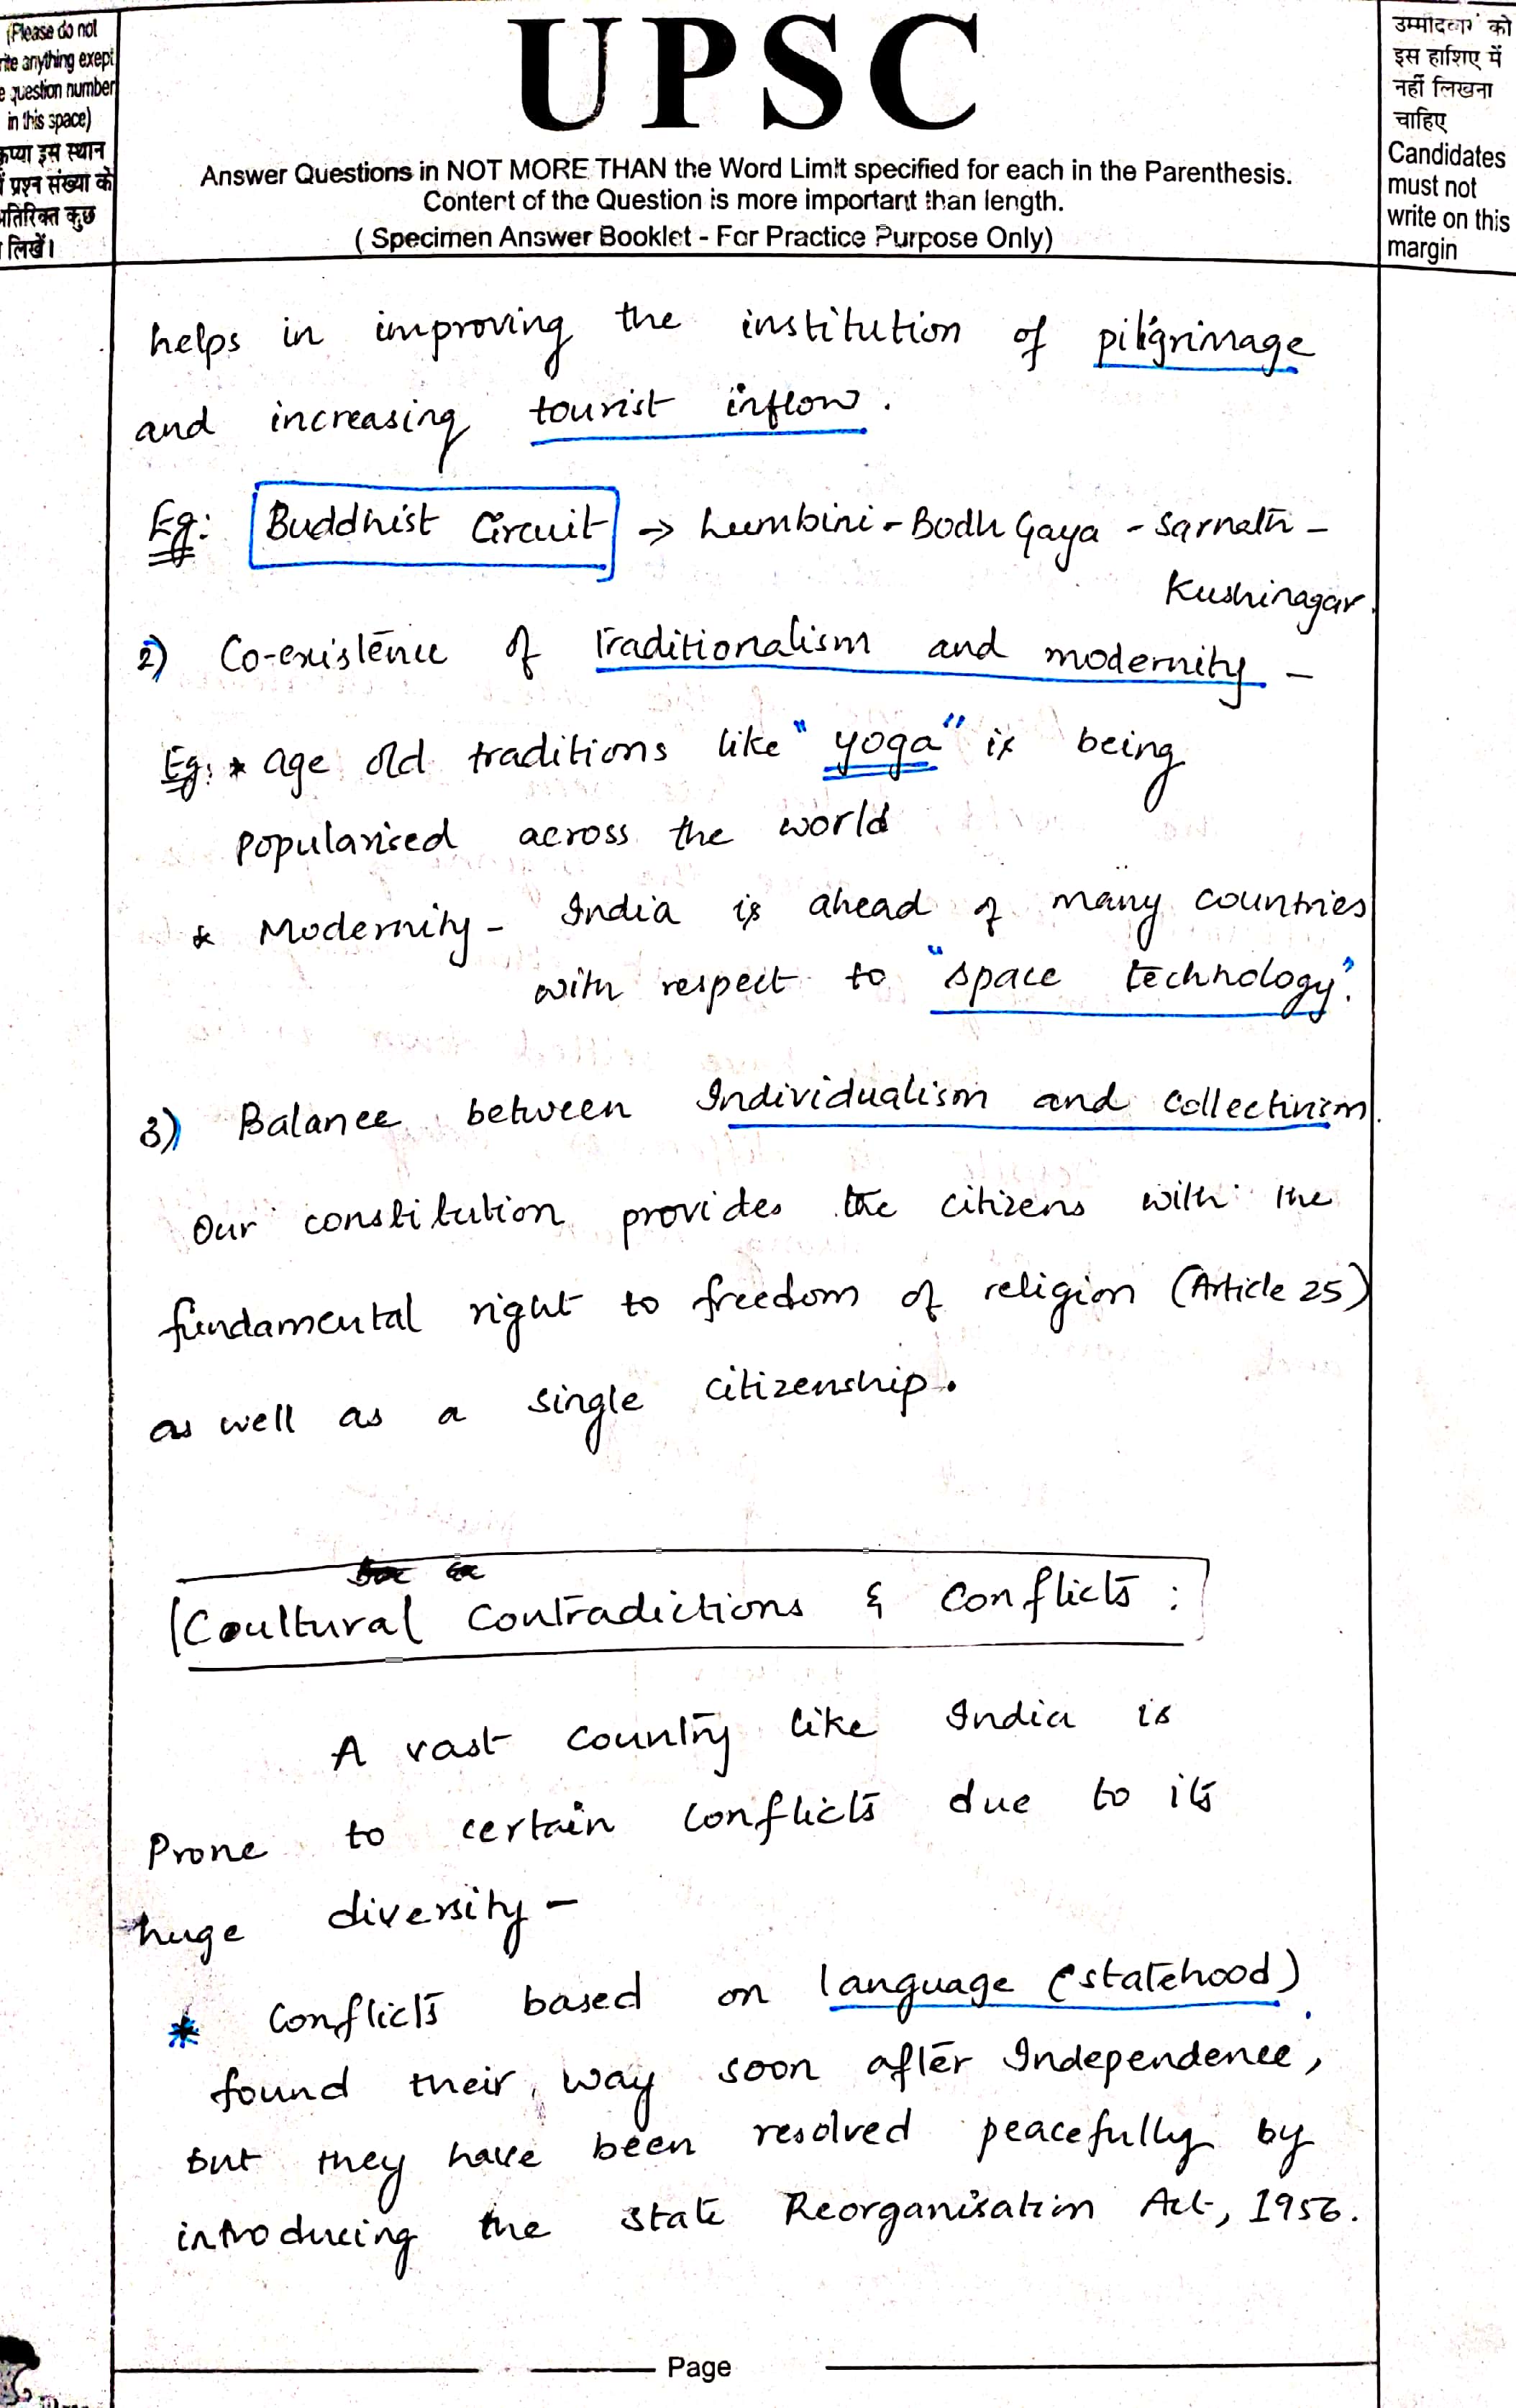 (Please do not
rite anything exept
e question number
in this space)
कृप्या इस स्थान
में प्रश्न संख्या के
अतिरिक्त कुछ
न लिखें।
UPSC
Answer Questions in NOT MORE THAN the Word Limit specified for each in the Parenthesis.
Content of the Question is more important than length.
( Specimen Answer Booklet - For Practice Purpose Only)
उम्मीदवार को
इस हाशिए में
नहीं लिखना
चाहिए
Candidates
must not
write on this
margin
helps in improving the institution of piligrimage
and increasing tourist inflow.
Eg: Buddhist Circuit → Lumbini - Bodh Gaya - Sarnath -
Kushinagar.
2) Co-existence of Traditionalism and modernity -
Eg: * age old traditions like "yoga" is being
popularised across the world
* Modernity - India is ahead of many countries
with respect to "space technology".
3) Balance between Individualism and collectivism.
Our constitution provides the citizens with the
fundamental right to freedom of religion (Article 25)
as well as a single citizenship.
Coultural Contradictions & Conflicts :
A vast country like India is
Prone to certain conflicts due to its
huge diversity -
* Conflicts based on language (statehood).
found their way soon after Independence,
but they have been resolved peacefully by
introducing the state Reorganisation Act, 1956.
Page